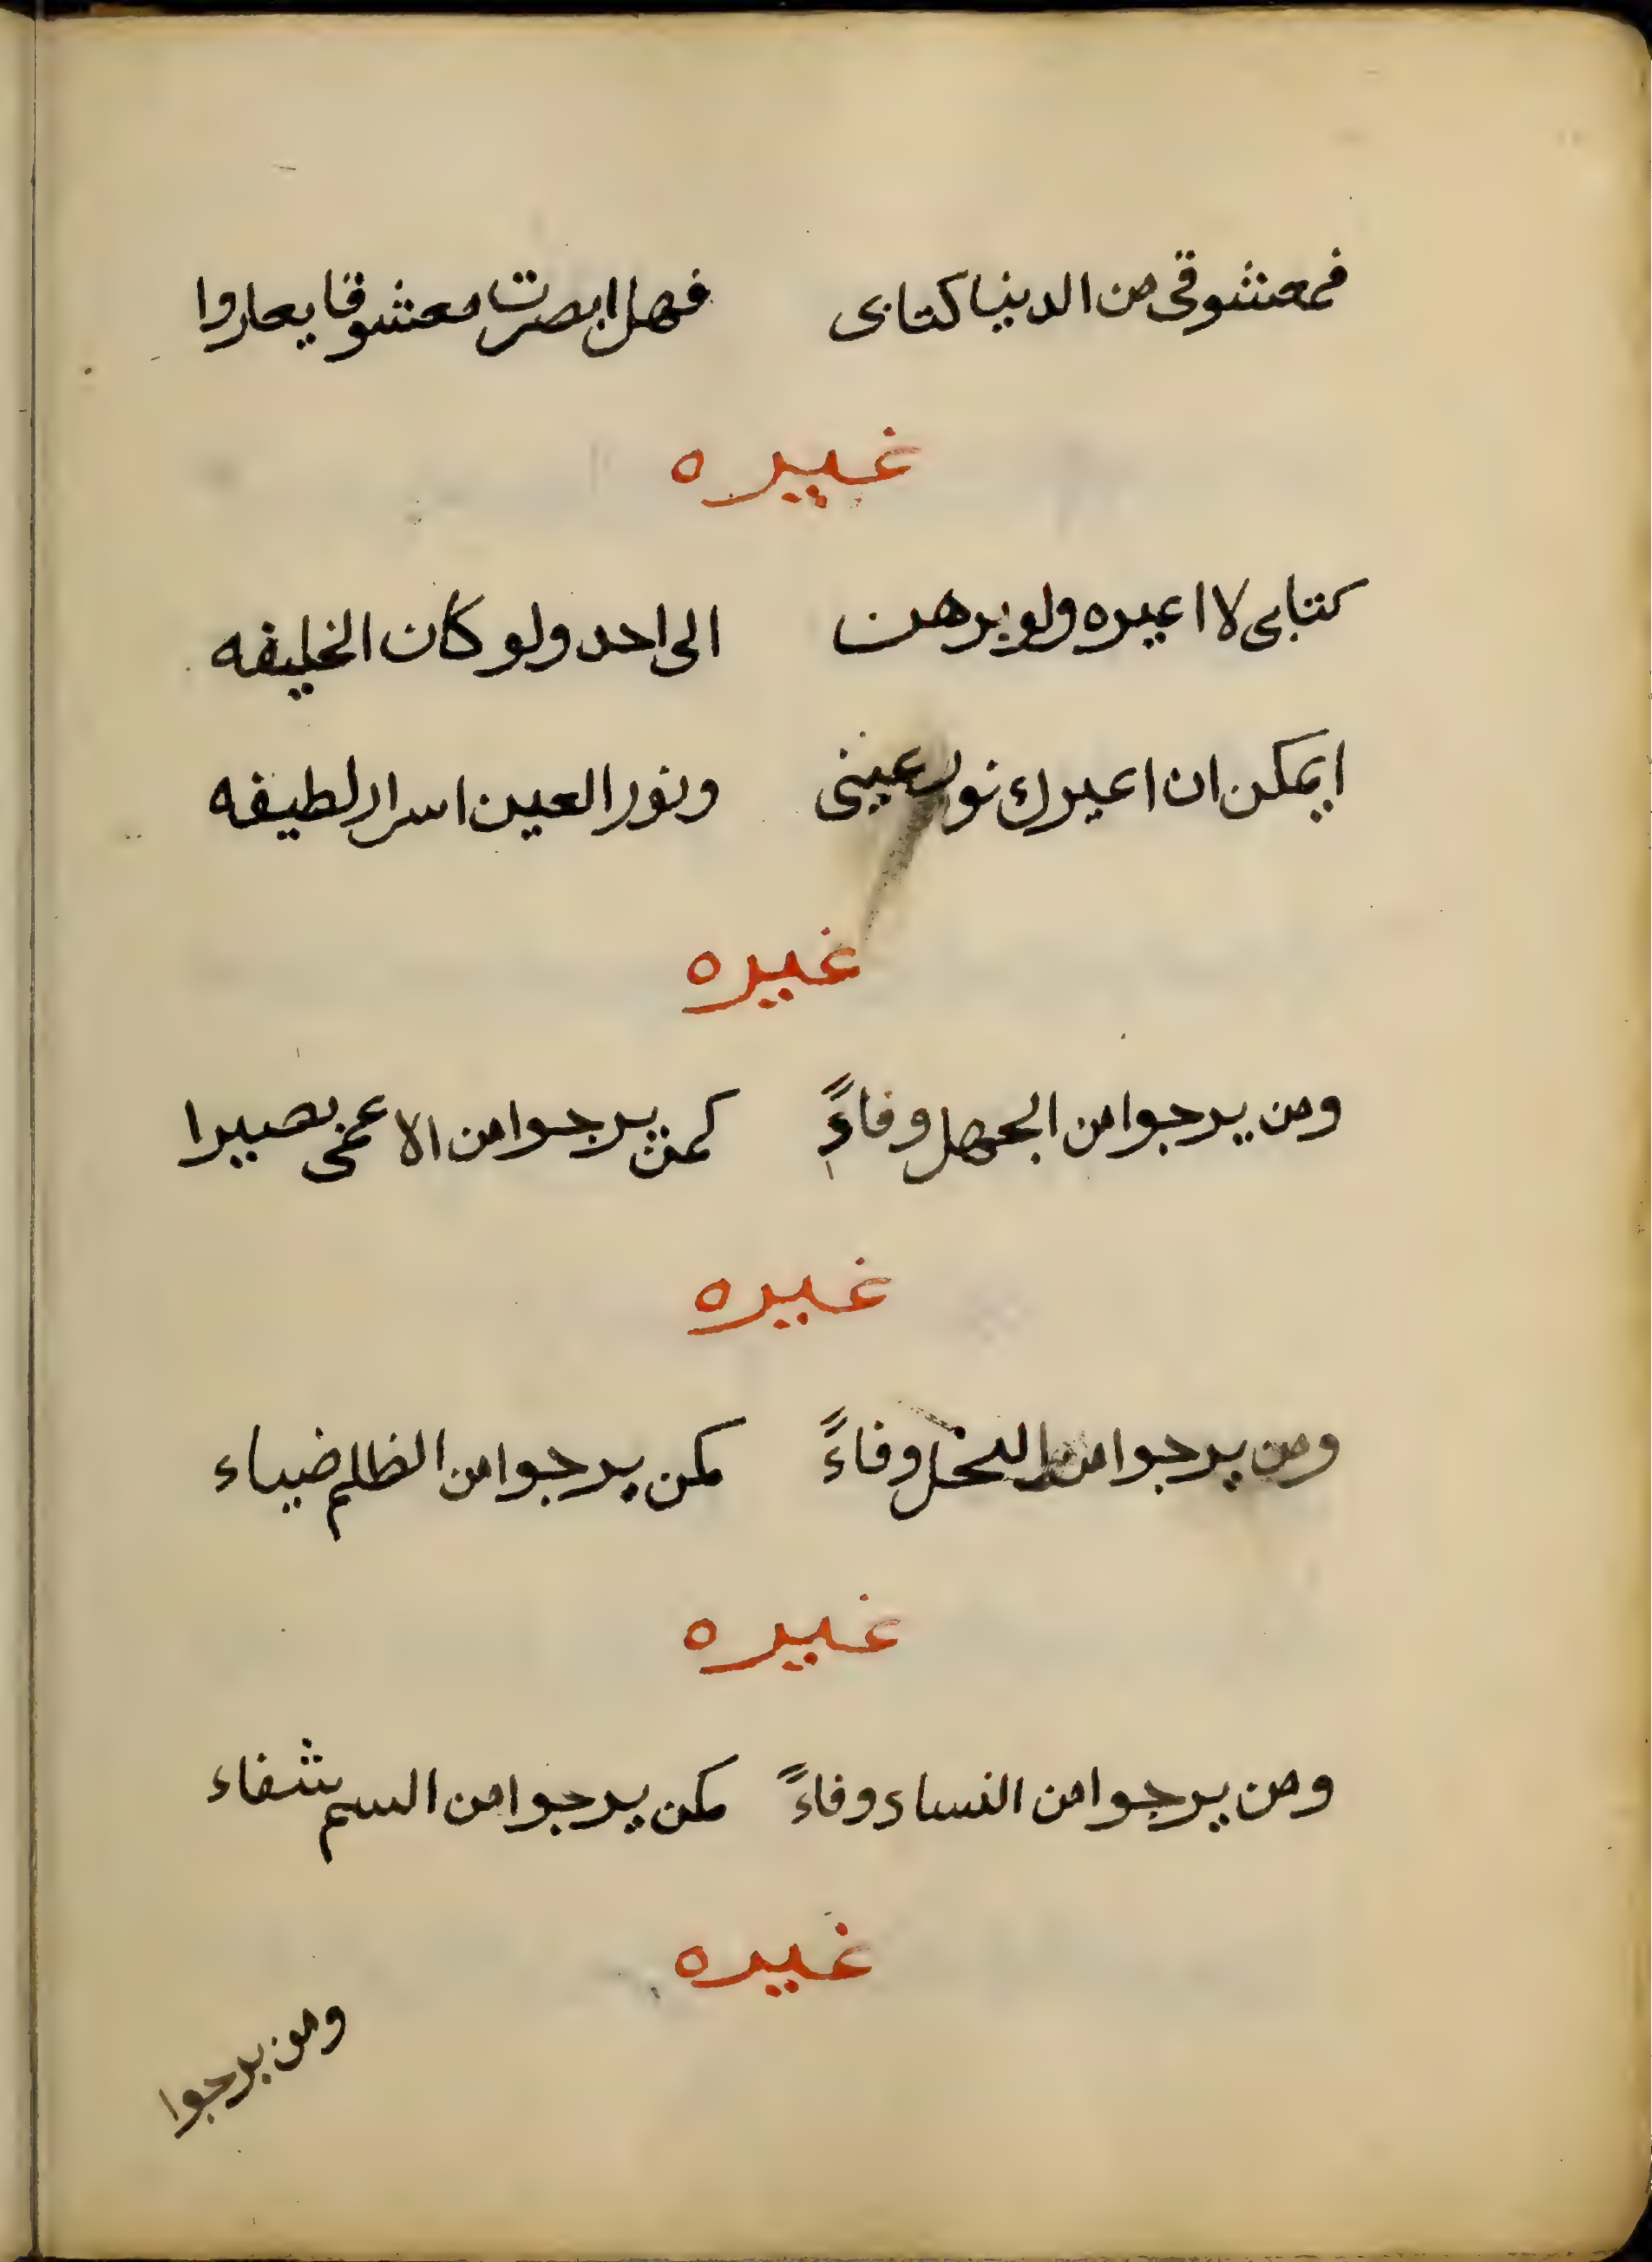 فمعشوقى من الدنيا كتابى فهل ابصرت معشوقا يعاروا
غيره
كتابى لا اعيره ولو برهن الى احد ولو كان الخليفه
ايمكن ان اعيرك نور عينى ونور العين اسرار لطيفه
غيره
ومن يرجوا من الجهل وفاءً كمن يرجوا من الاعمى بصيرا
غيره
ومن يرجوا من البخل وفاءً كمن يرجوا من الظلم ضياء
غيره
ومن يرجوا من النساء وفاءً كمن يرجوا من السم شفاء
غيره
ومن يرجوا